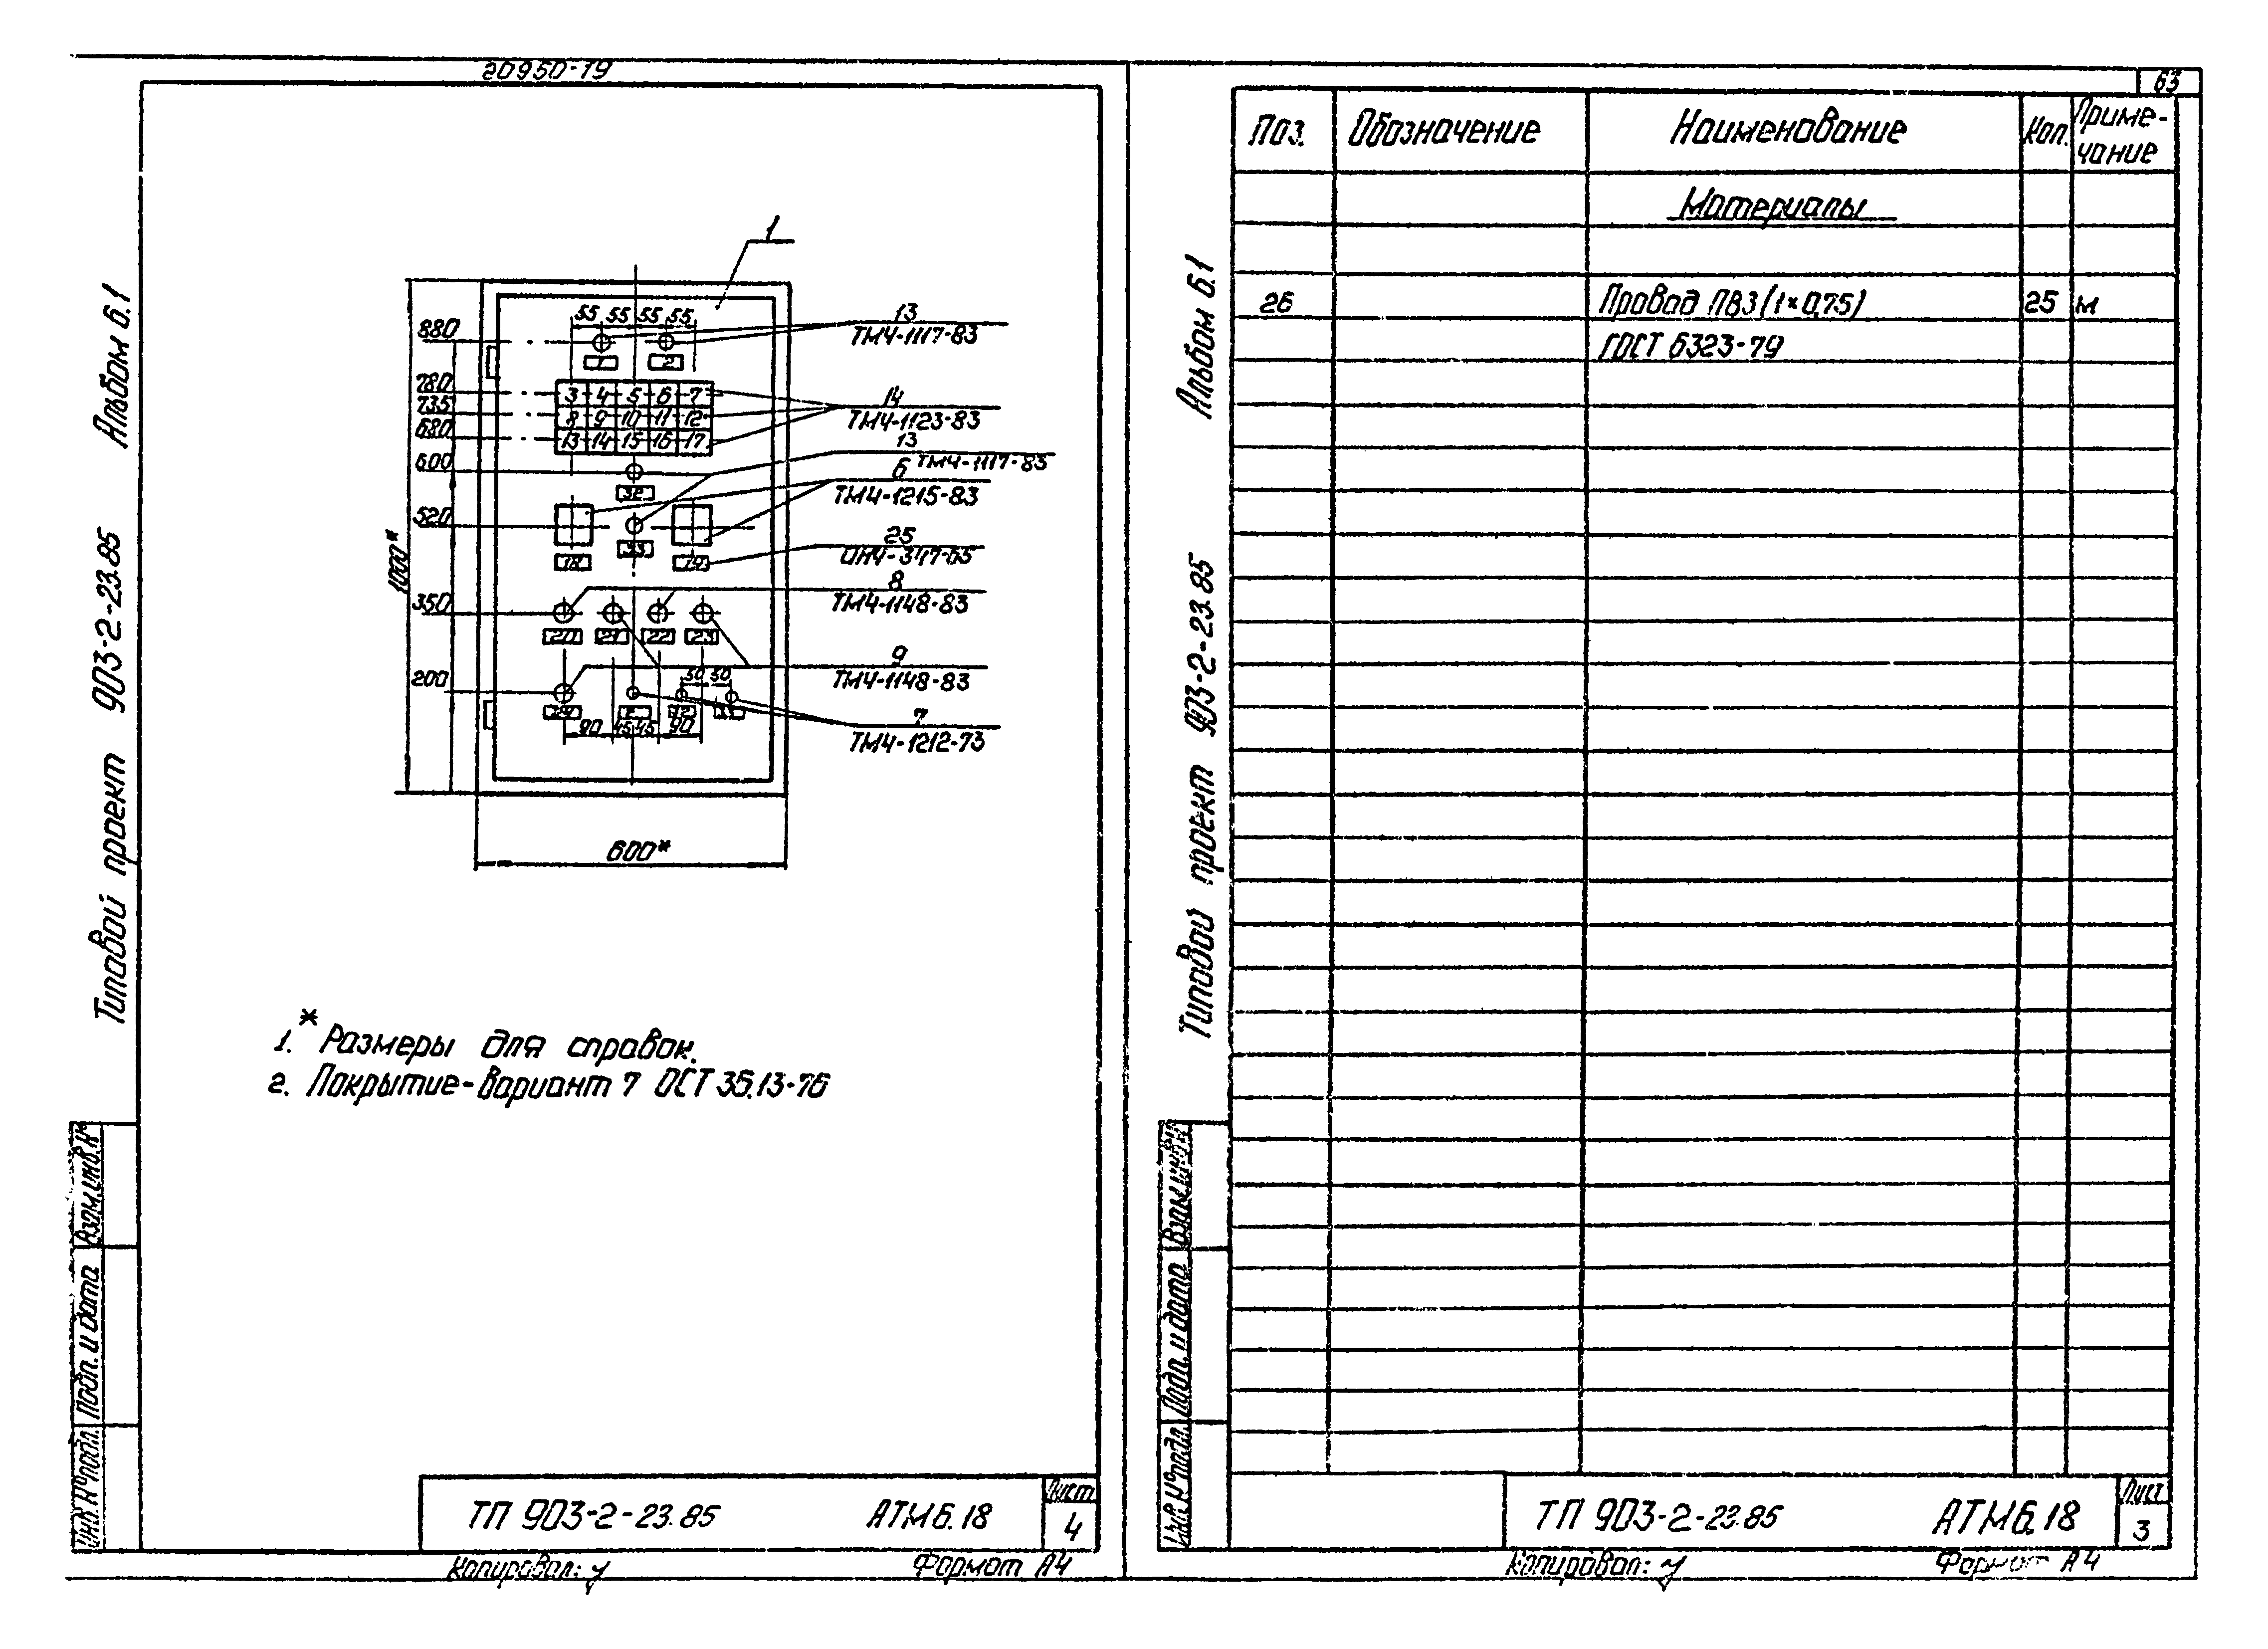 20950-19
63
Альбом 6.1
Типовой проект 903-2-23.85
1
55 55 55 55
880
13
ТМ4-1117-83
1 2
780
3 4 5 6 7
14
ТМ4-1123-83
735
8 9 10 11 12
680
13 14 15 16 17
13
ТМ4-1117-83
600
32
6
ТМ4-1215-83
520
33
18 19
25
ОН4-347-65
1000*
350
8
ТМ4-1148-83
20 21 22 23
9
ТМ4-1148-83
200
50 50
7
ТМ4-1212-73
90 45 45 90
600*
1. * Размеры для справок.
2. Покрытие-вариант 7 ОСТ 36.13-76
Взам.инв.№
Подп. и дата
Инв.№подл.
ТП 903-2-23.85 АТМ6.18
Лист
4
Копировал:
Формат А4
Альбом 6.1
Типовой проект 903-2-23.85
Поз. Обозначение Наименование Кол. Приме-
чание
Материалы
26 Провод ПВ3 (1×0,75) 25 м
ГОСТ 6323-79
Взам.инв.№
Подп. и дата
Инв.№подл.
ТП 903-2-23.85 АТМ6.18
Лист
3
Копировал:
Формат А4